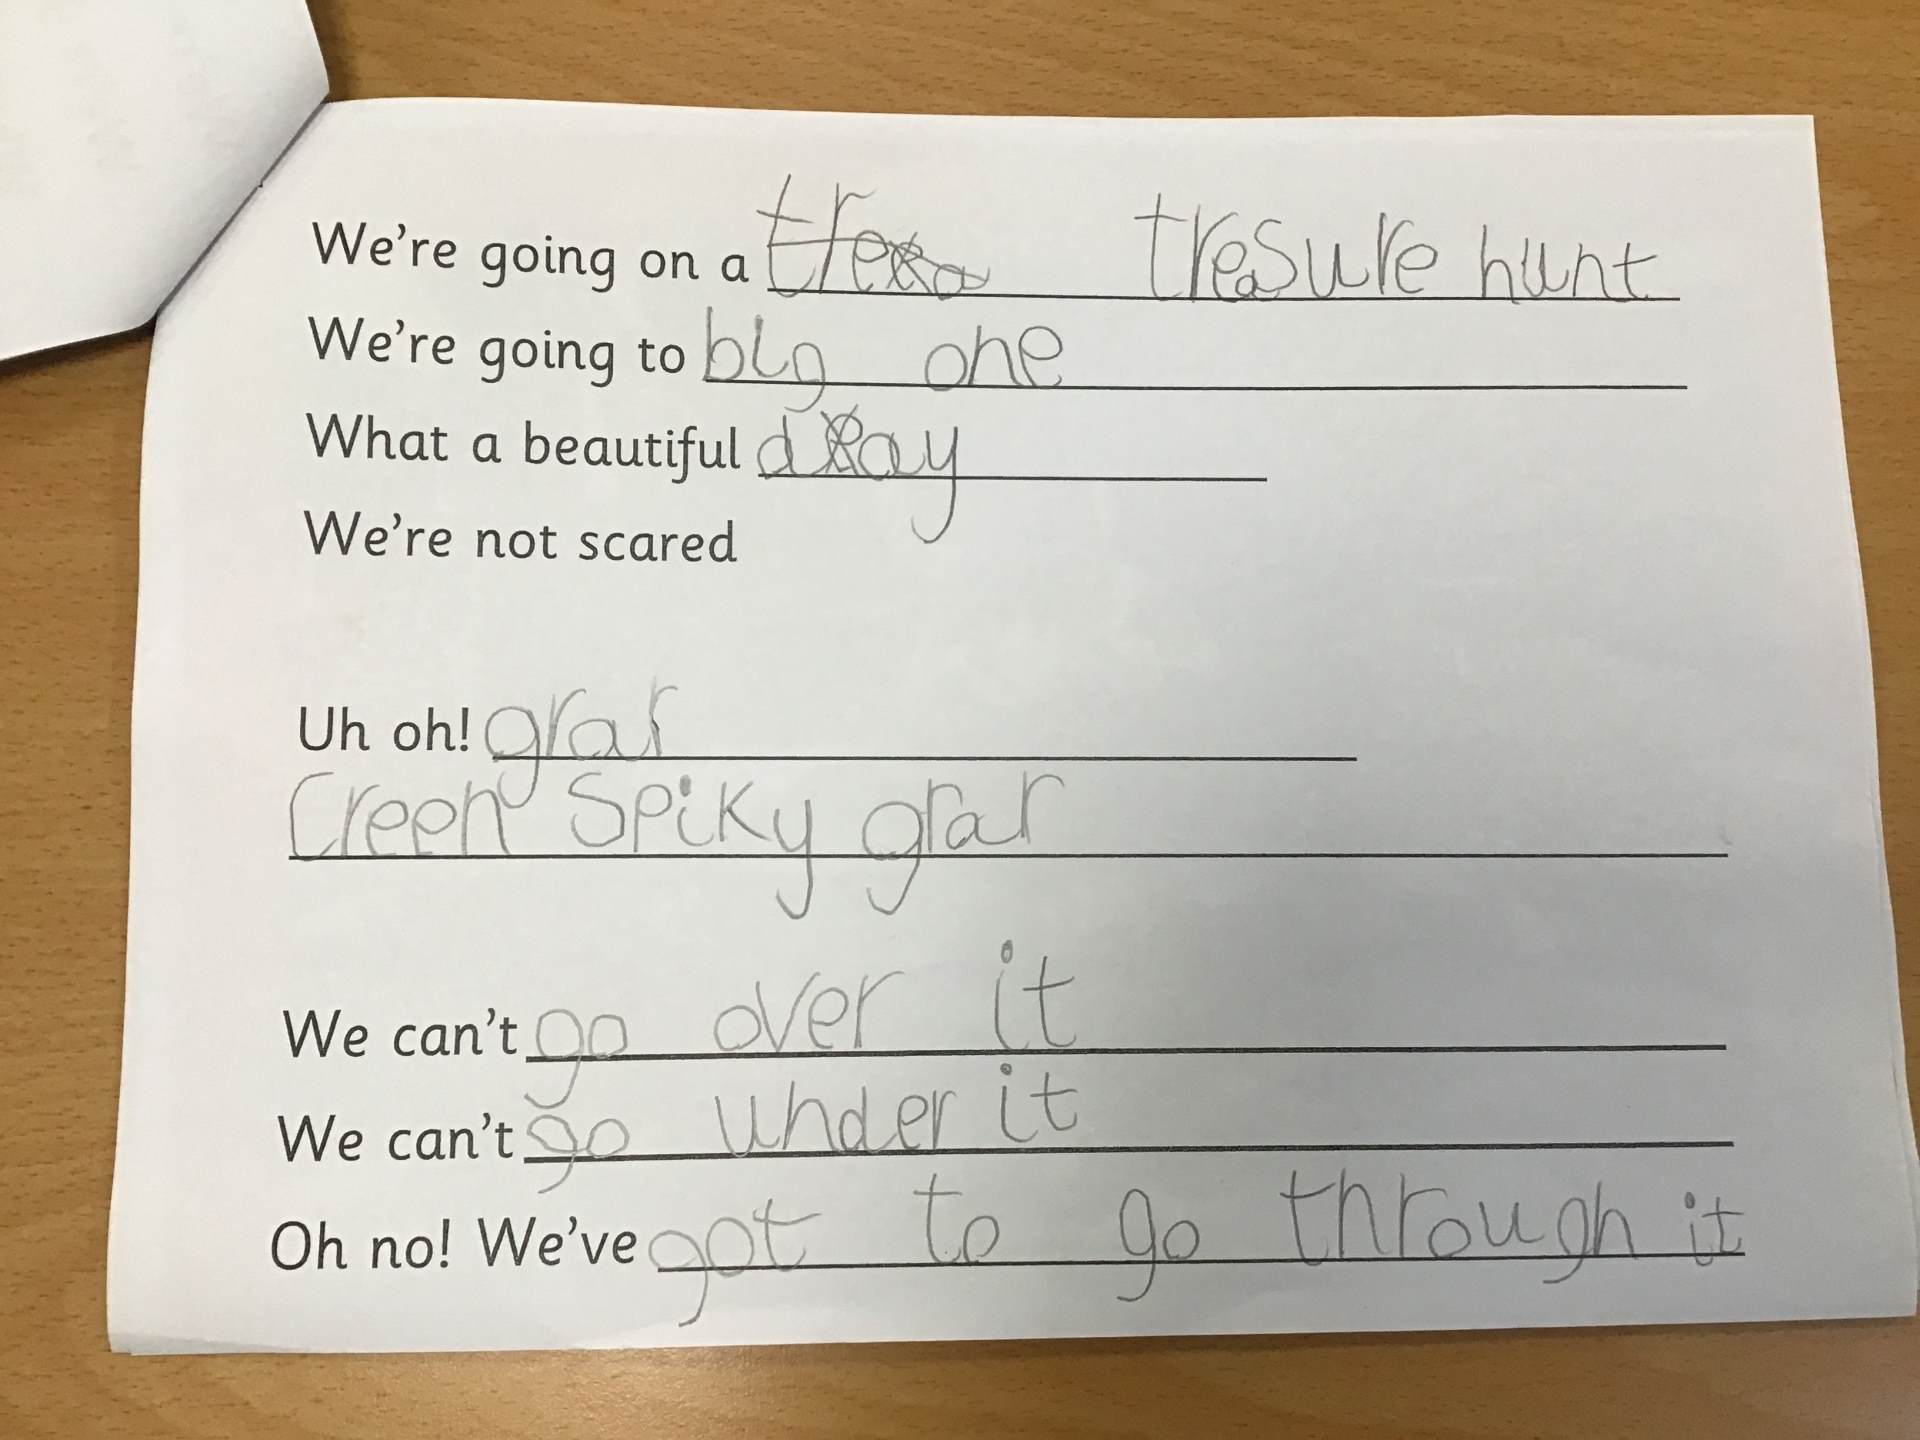 We're going on a treasure hunt
We're going to big one
What a beautiful day
We're not scared
Uh oh! grar
Creen Spiky grar
We can't go over it
We can't go under it
Oh no! We've got to go through it